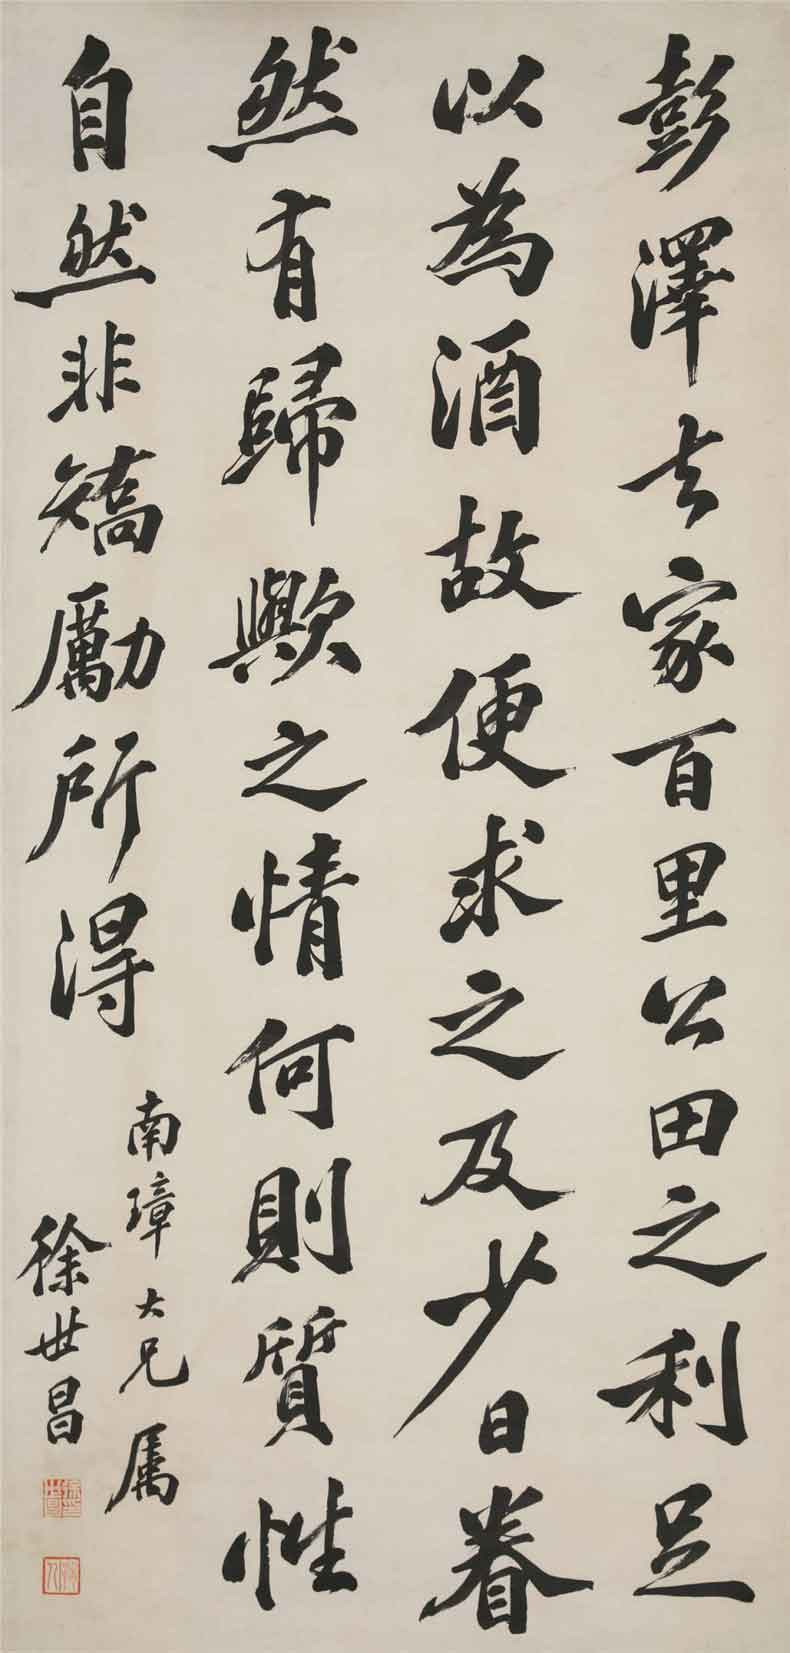 彭澤去家百里公田之利足
以為酒故便求之及少日眷
然有歸歟之情何則質性
自然非矯勵所得
南璋大兄属
徐世昌